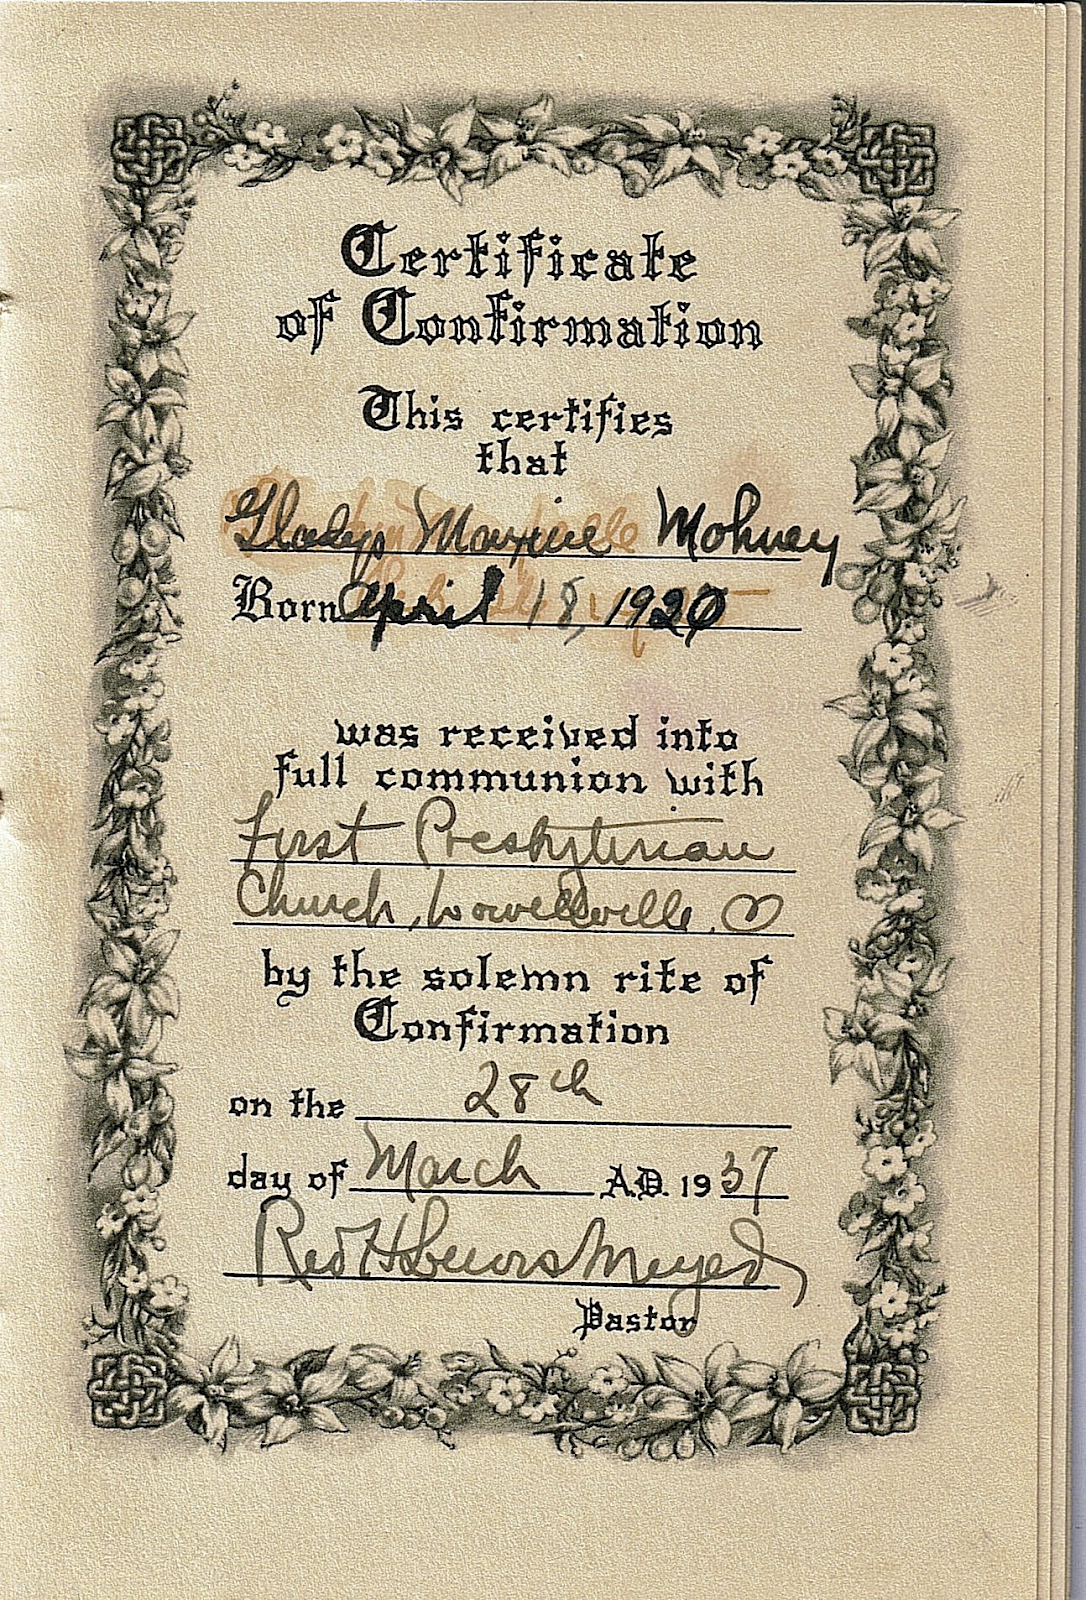 Certificate
of Confirmation
This certifies
that
Gladys Maxine Mohney
Born April 18, 1920
was received into
full communion with
First Presbyterian
Church, Lowellville, O
by the solemn rite of
Confirmation
on the 28th
day of March A.D. 1937
Rev H Lewis Meyer
Pastor